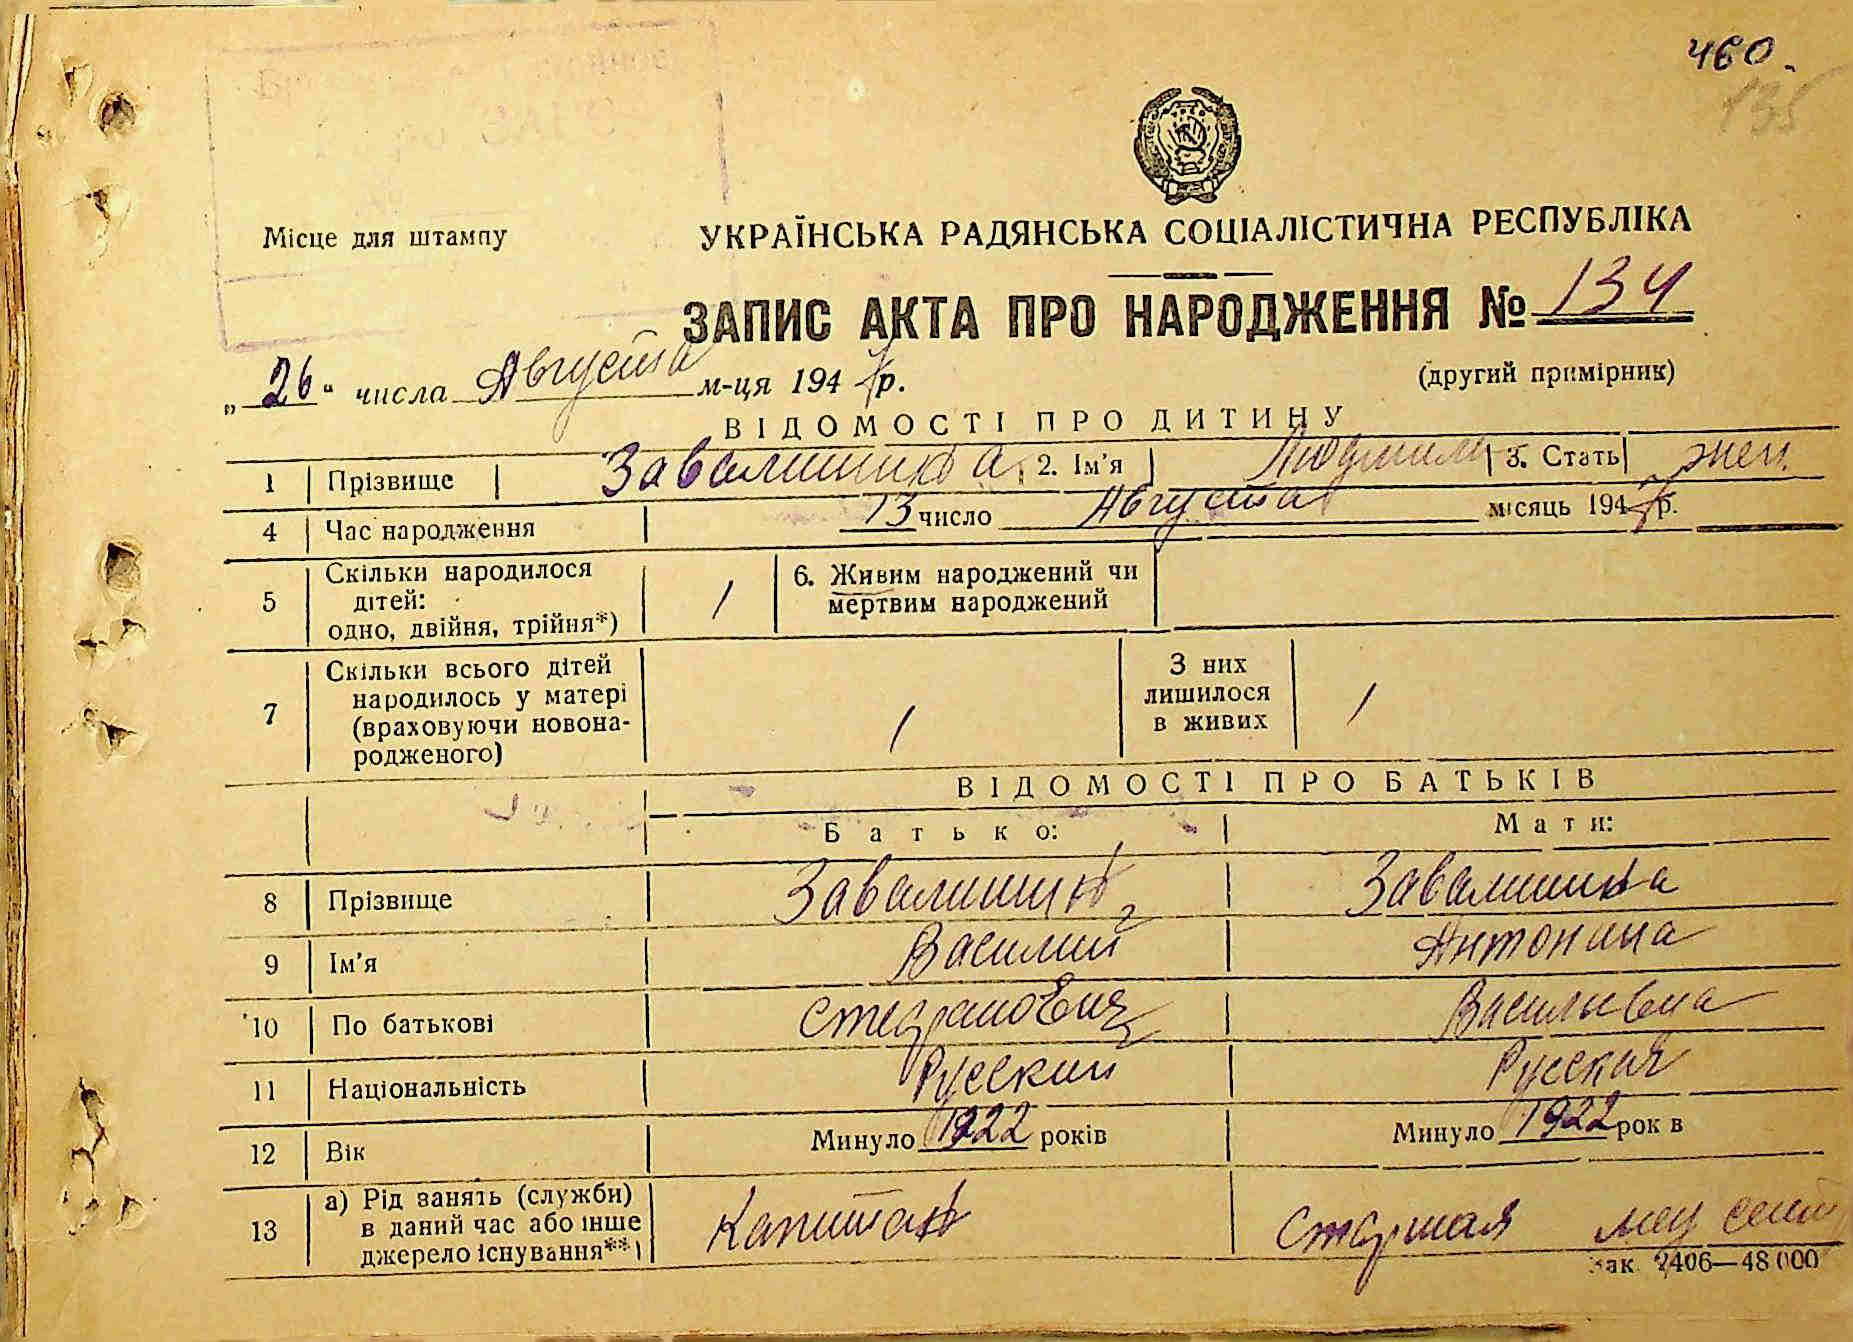 460.
135
Місце для штампу
УКРАЇНСЬКА РАДЯНСЬКА СОЦІАЛІСТИЧНА РЕСПУБЛІКА
ЗАПИС АКТА ПРО НАРОДЖЕННЯ № 134
„26" числа Августа м-ця 1947 р.
(другий примірник)
ВІДОМОСТІ ПРО ДИТИНУ
1 Прізвище Завалишина 2. Ім'я Людмила 3. Стать жен.
4 Час народження 13 число Августа місяць 1947 р.
5 Скільки народилося дітей: одно, двійня, трійня*) 1 6. Живим народжений чи мертвим народжений
7 Скільки всього дітей народилось у матері (враховуючи новонародженого) 1 З них лишилося в живих 1
ВІДОМОСТІ ПРО БАТЬКІВ
Батько: Мати:
8 Прізвище Завалишин Завалишина
9 Ім'я Василий Антонина
10 По батькові Стефанович Васильевна
11 Національність Русский Русская
12 Вік Минуло 1922 років Минуло 1922 рок в
13 а) Рід занять (служби) в даний час або інше джерело існування**) Капитан Старшая мед сест
зак 2406—48 000